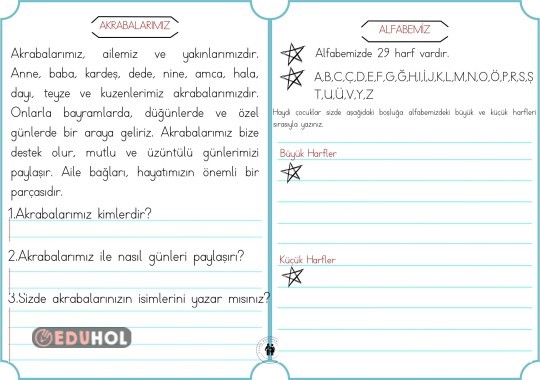 AKRABALARIMIZ
Akrabalarımız, ailemiz ve yakınlarımızdır.
Anne, baba, kardeş, dede, nine, amca, hala,
dayı, teyze ve kuzenlerimiz akrabalarımızdır.
Onlarla bayramlarda, düğünlerde ve özel
günlerde bir araya geliriz. Akrabalarımız bize
destek olur, mutlu ve üzüntülü günlerimizi
paylaşır. Aile bağları, hayatımızın önemli bir
parçasıdır.
1.Akrabalarımız kimlerdir?
2.Akrabalarımız ile nasıl günleri paylaşırı?
3.Sizde akrabalarınızın isimlerini yazar mısınız?
EDUHOL
ALFABEMİZ
Alfabemizde 29 harf vardır.
A,B,C,Ç,D,E,F,G,Ğ,H,I,İ,J,K,L,M,N,O,Ö,P,R,S,Ş
T,U,Ü,V,Y,Z
Haydi çocuklar sizde aşağıdaki boşluğa alfabemizdeki büyük ve küçük harfleri
sırasıyla yazınız.
Büyük Harfler
Küçük Harfler